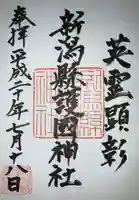 英霊顕彰
新潟縣護國神社
奉拝 平成二十年七月十八日